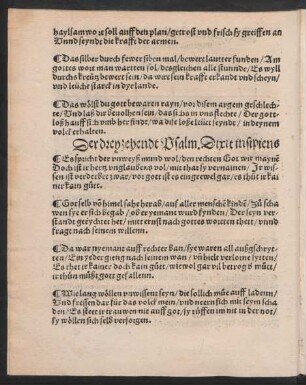 haylsam wo[r]t soll auff den plan/getrost vnd frisch sy greiffen an
Vnnd seynd die krafft der armen.
¶Das silber durch fewer siben mal/bewert lautter funden/Am
gottes wort man warten sol/desgleichen alle stunnde/Es wyll
durch kreütz bewert sein/da wirt sein krafft erkandt vnd scheyn/
vnd leücht starck in dye lande.
¶Das wölst du gott bewaren rayn/vor disem argem geschlech-
te/Vnd laß dir beuolhen sein/das sichs in vns flechte/Der gott-
loß hauff sich vmb her findt/wa die loße leüt seynde/in deynem
volck erhaben.
Der dreyzehende Psalm, Dixit insipiens
¶Es spricht der vnweyß mund wol/den rechten Got wir mayne
Doch ist ir hertz vnglaubens vol/mit that sy vernainen/Ir wi-
sen ist verderbet zwar/vor got ist es ein grewel gar/es thůt ir kai
ner kain gůtt.
¶Got selb von himel sahe herab/auff aller mensche kindẽ/Zů scha
wen sye er sich begab/ob er yemant wurd fynden/Der seyn ver-
standt gerichtet het/mit ernst nach gottes worten thett/vnnd
fragt nach seinem willenn.
¶Da war nyemant auff rechter ban/sye waren all außgschryt-
ten/Ein yeder gieng nach seinem wan/vñ hielt verlorne syten/
Es thet ir kainer doch kain gůtt/wie wol gar vil betrog ð můtt/
ir thůn můst gott gefallenn.
¶Wie lang wöllen vnwissent seyn/die sollich můe auff ladenn/
Vnnd fressen dar für das volck mein/vnd neern sich mit seym scha
den/Es steet ir trawen nit auff got/sy růffen im nit in der not/
sy wöllen sich selb versorgen.